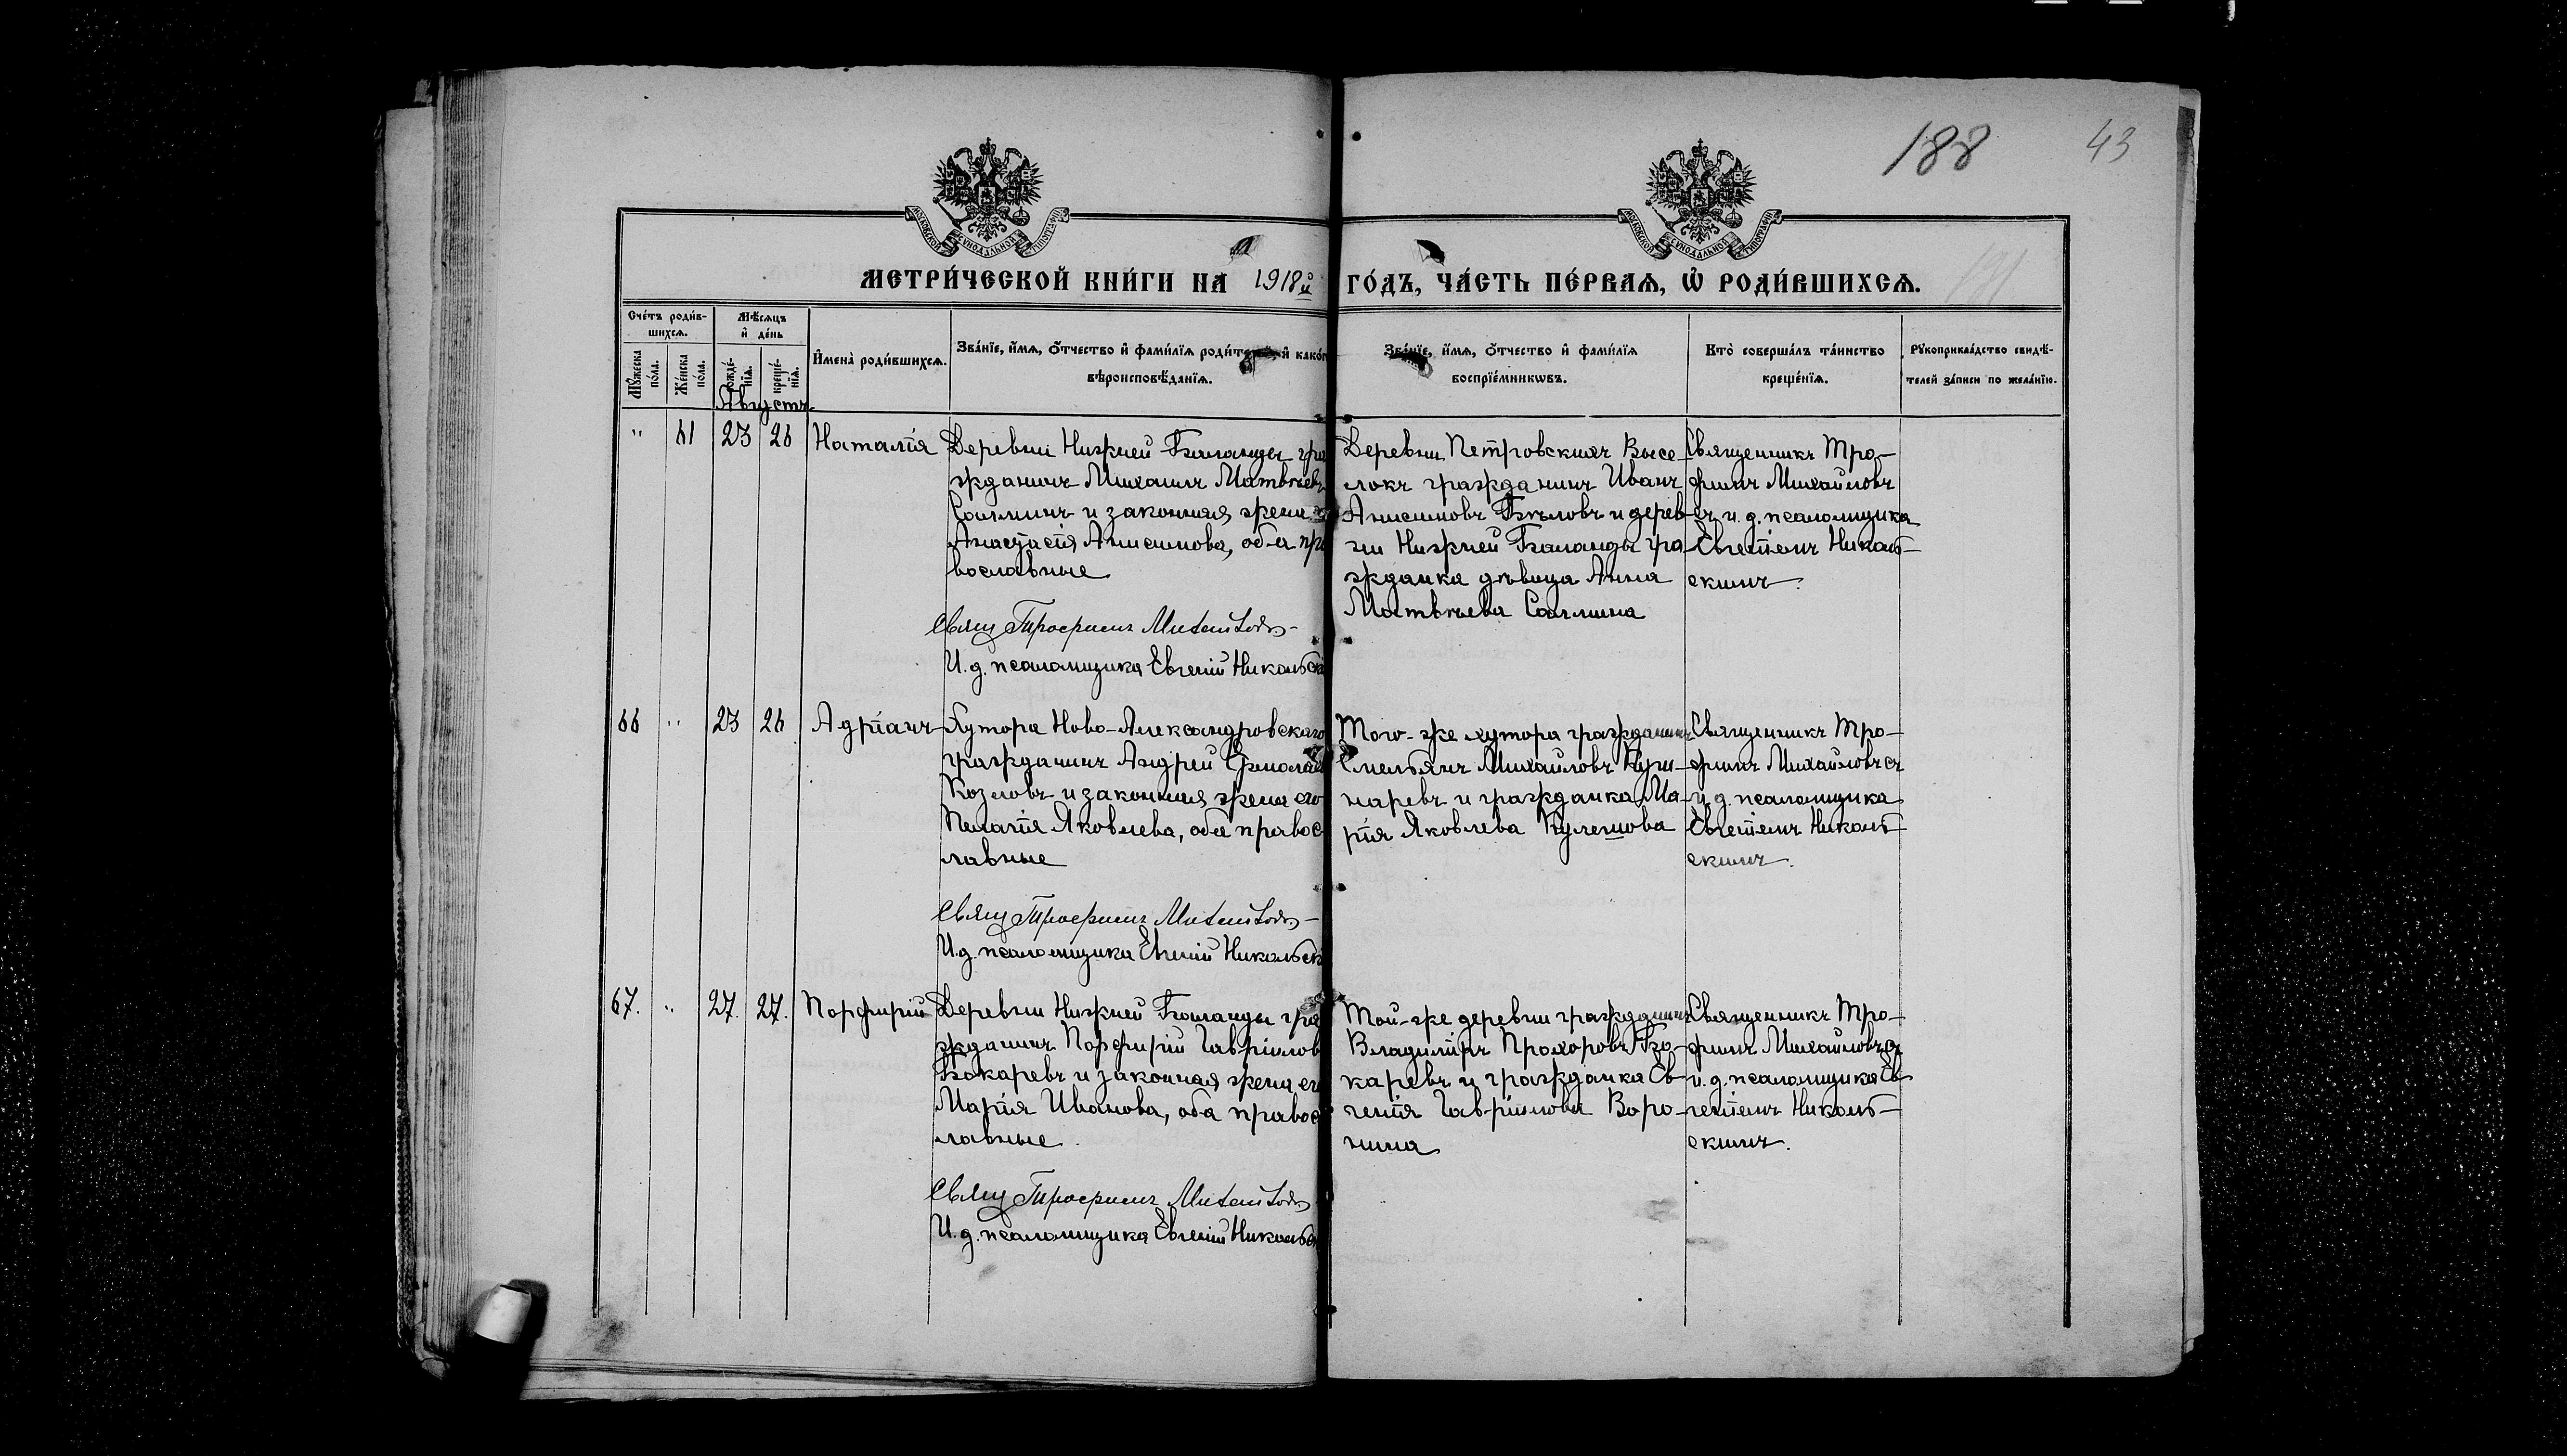 188 43
МОСКОВСКОЙ СѴНОДАЛЬНОЙ ТѴПОГРАФІИ
МОСКОВСКОЙ СѴНОДАЛЬНОЙ ТѴПОГРАФІИ
МЕТРИ́ЧЕСКОЙ КНИ́ГИ НА 1918й ГО́ДЪ, ЧА́СТЬ ПЕ́РВАѦ, Ѽ РОДИ́ВШИХСѦ.
Сче́тъ роди́в-
шихсѧ.
Мꙋ́жеска по́ла.
Же́нска по́ла.
Мѣ́сѧцъ
и҆ де́нь
рожде́-
нїѧ.
креще́-
нїѧ.
Августъ
И҆мена̀ роди́вшихсѧ.
Зва́нїе, и҆́мѧ, ѻ҆́тчество и҆ фами́лїѧ роди́т и҆ како́г
вѣроисповѣ́данїѧ.
Зва́нїе, и҆́мѧ, ѻ҆́тчество и҆ фами́лїѧ
воспрїе́мникωвъ.
Кто̀ соверша́лъ та́инство
креще́нїѧ.
Рꙋкоприкла́дство свидѣ́-
телей за́писи по жела́нїю.
" 61 23 26 Наталія
Деревни Нижней Баланды гра
жданинъ Михаилъ Матвѣевъ
и законная жена
Анастасія Анисимова, оба пра
вославные
Свящ Трофимъ Михайловъ
И. д. псаломщика Евгеній Никольскі
Деревни Петровскихъ Высе-
локъ гражданинъ Иванъ
Анисимовъ Бѣловъ и дерев-
ни Нижней Баланды гра-
жданка дѣвица Анна
Матвѣева
Священникъ Тро-
фимъ Михайловъ
съ и. д. псаломщика
Евгеніемъ Николь-
скимъ.
66 " 23 26 Адріанъ
Хутора Ново-Александровскаго
гражданинъ Андрей Ермолаев
Козловъ и законная жена его
Пелагія Яковлева, оба правос
лавные
Свящ Трофимъ Михайловъ
И. д. псаломщика Евгеній Никольск
Того-же хутора гражданинъ
Емельянъ Михайловъ Куш-
наревъ и гражданка Ма-
рія Яковлева Кулешова
Священникъ Тро-
фимъ Михайловъ съ
и. д. псаломщика
Евгеніемъ Николь-
скимъ.
67. " 27. 27. Порфирій
Деревни Нижней Баланды гра
жданинъ Порфирій Гавріилов
Бокаревъ и законная жена ег
Марія Иванова, оба правос
лавные.
Свящ Трофимъ Михайловъ
И. д. псаломщика Евгеній Никольс
Той-же деревни гражданинъ
Владиміръ Прохоровъ Бо-
каревъ и гражданка Ев-
генія Гавріилова Воро-
нина
Священникъ Тро-
фимъ Михайловъ съ
и. д. псаломщика Ев-
геніемъ Николь-
скимъ.